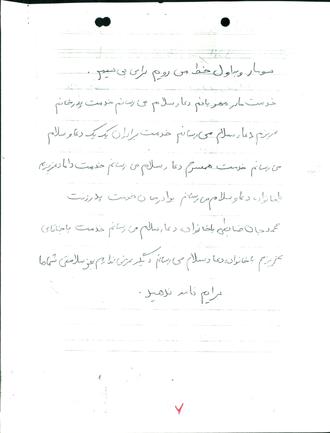 سوار و باول خط می رویم برای بی سیم.
خدمت مادر مهربانم دعا و سلام می رسانم خدمت پدر خانم
عزیزم دعا و سلام می رسانم خدمت برادران یک یک دعا و سلام
می رسانم خدمت همسرم دعا و سلام می رسانم خدمت داماد عزیزم
باخانواده دعا و سلام می رسانم برادر جان خدمت
محمد جان باخانواده دعا و سلام می رسانم خدمت باجناقهای
عزیزم باخانواده دعا و سلام می رسانم دیگر عرضی ندارم بجز سلامتی شماها
برایم نامه بدهید.
۷